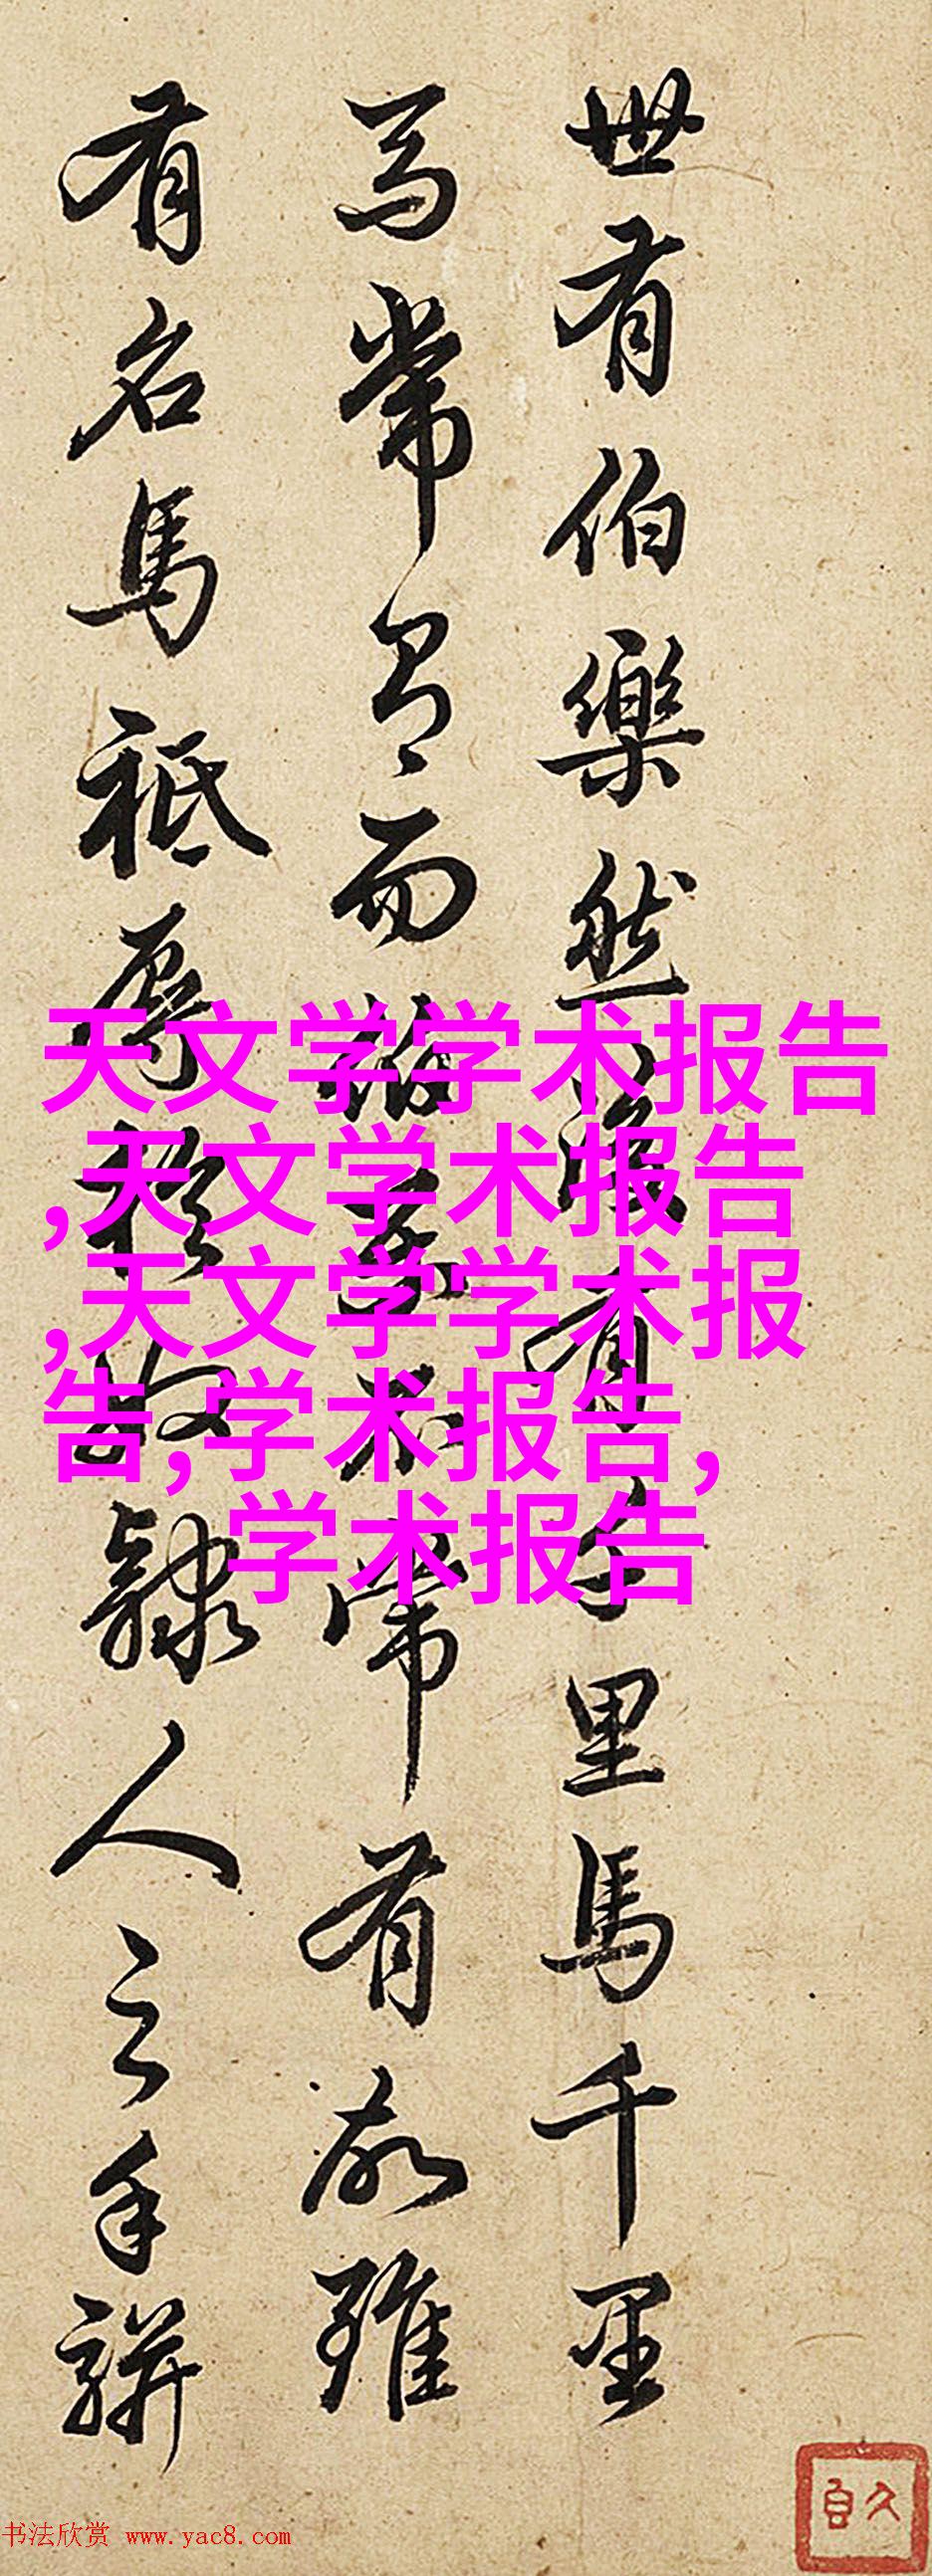 世有伯樂然後有千里馬千里
馬常有而伯樂不常有故雖
有名馬祗辱於奴隸人之手駢
天文学学术报告
,天文学术报告
,天文学学术报
告,学术报告,
学术报告
书法欣赏 www.yac8.com